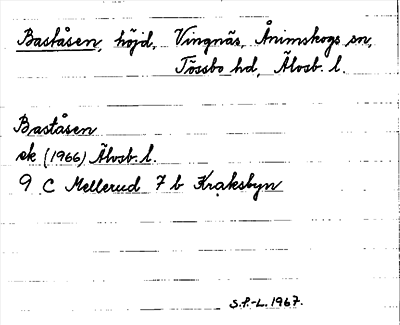 Baståsen, höjd, Vingnäs, Ånimskogs sn,
Tössbo hd, Älvsb. l.
Baståsen
ek (1966) Älvsb. l.
9 C Mellerud 7 b Kraksbyn
S.P.-L. 1967.